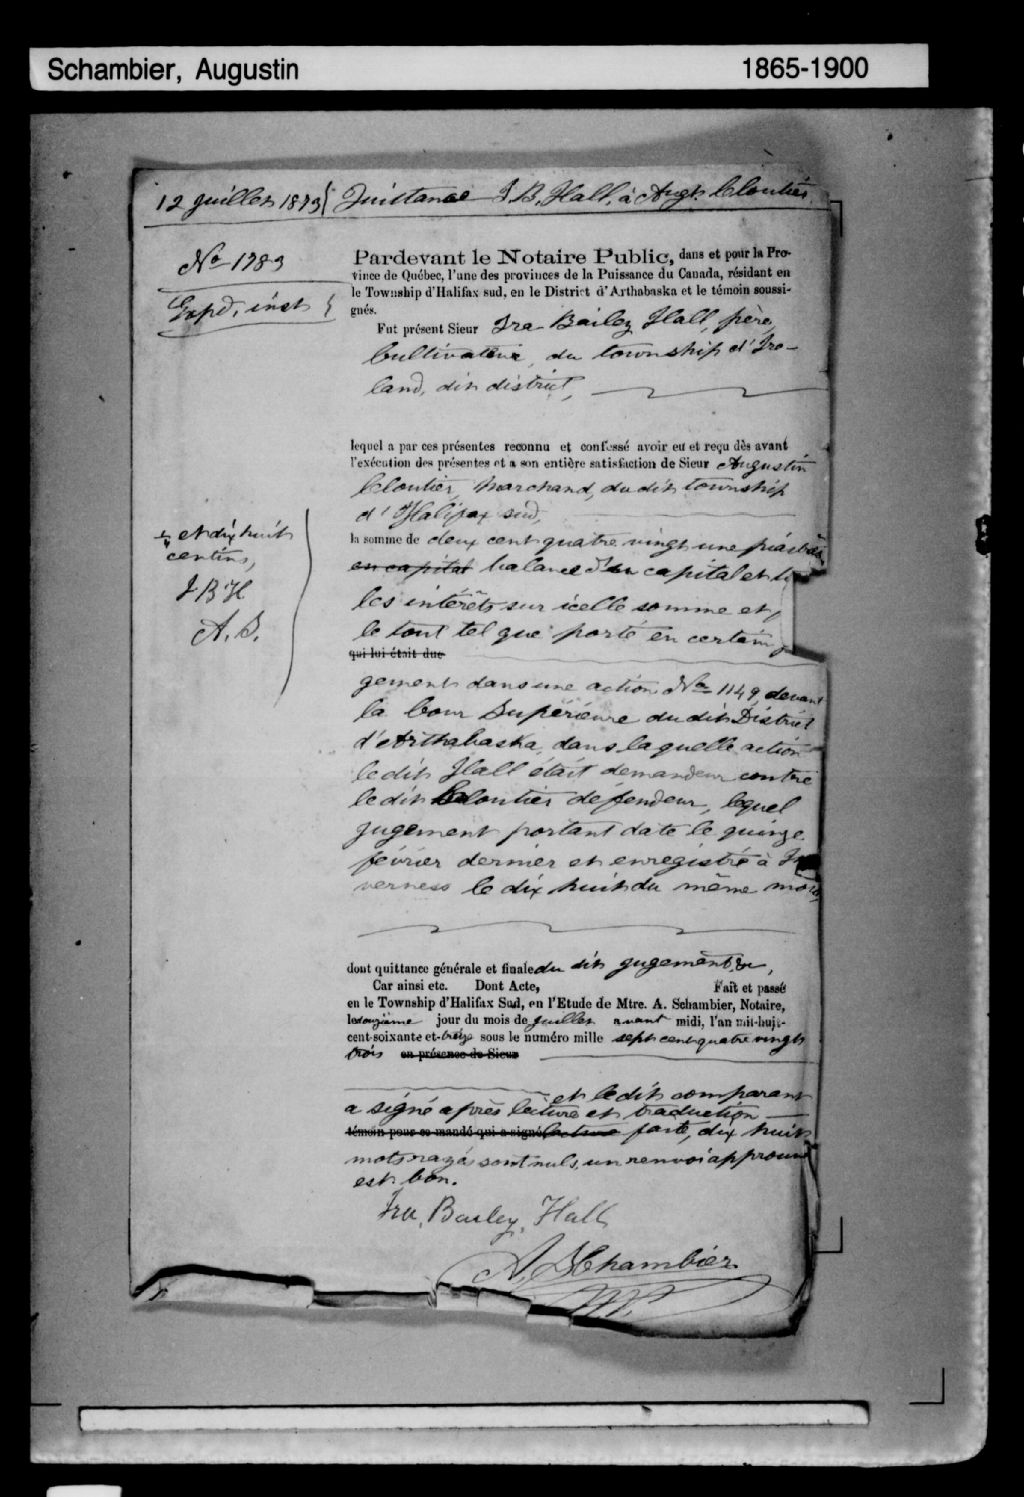 Schambier, Augustin 1865-1900
12 juillet 1873 Quittance I. B. Hall, à Augt. Cloutier
No 1783
Expd, inst
Pardevant le Notaire Public, dans et pour la Pro-
vince de Québec, l'une des provinces de la Puissance du Canada, résidant en
le Township d'Halifax sud, en le District d'Arthabaska et le témoin soussi-
gnés.
Fut présent Sieur Ira Bailey Hall, père,
Cultivateur, du township d'Ire-
land, dit district,
lequel a par ces présentes reconnu et confessé avoir eu et reçu dès avant
l'exécution des présentes et a son entière satisfaction de Sieur Augustin
Cloutier, Marchand, du dit township
d'Halifax sud,
la somme de deux cent quatre vingt une piastres
en capital balance du capital et
les intérêts sur icelle somme et,
le tout tel que porté en certain
qui lui était due
et dix huit
centins,
I B H
A. S.
gement dans une action No 1149 devant
la Cour Supérieure du dit District
d'Arthabaska, dans laquelle action
le dit Hall était demandeur contre
le dit Cloutier defendeur, lequel
jugement portant date le quinze
février dernier et enregistré à In
verness le dix huit du même mois,
dont quittance générale et finale du dit jugement &c,
Car ainsi etc. Dont Acte, Fait et passé
en le Township d'Halifax Sud, en l'Etude de Mtre. A. Schambier, Notaire,
le douzième jour du mois de juillet avant midi, l'an mil-huit-
cent-soixante et-treize sous le numéro mille sept cent quatre vingt
trois en présence de Sieur
et le dit comparant
a signé après lecture et traduction
témoin pour ce mandé qui a signé lecture faite, dix huit
mots rayés sont nuls, un renvoi approuvé
est bon.
Ira, Bailey, Hall
A. Schambier
N.P.